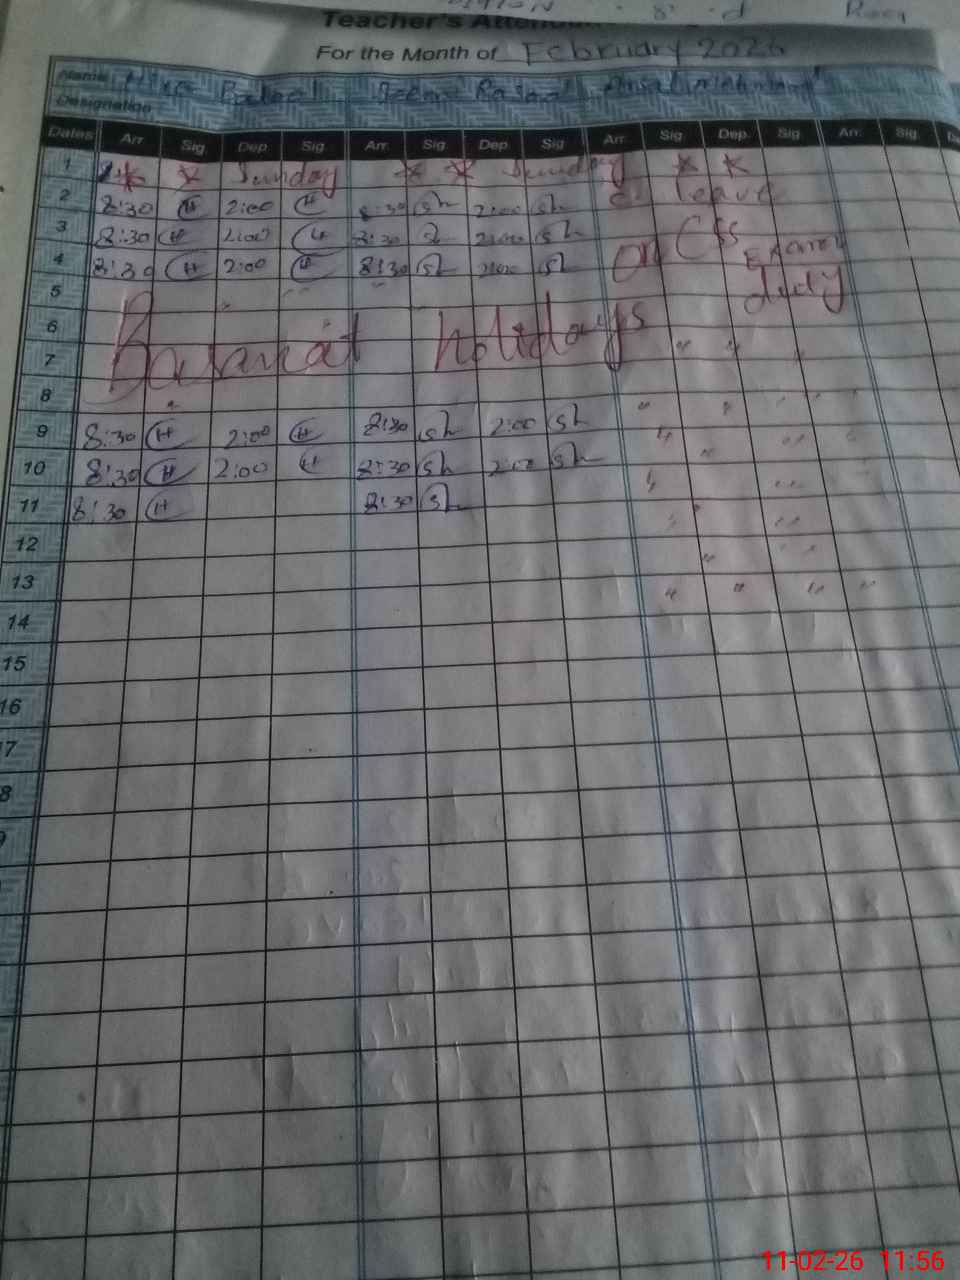 Teacher's
For the Month of February 2026
Name
Designation
Dates Arr Sig Dep Sig Arr. Sig Dep Sig Arr. Sig Dep. Sig Arr. Sig.
1 * * Sunday * * Sunday * *
2 8:30 H 2:00 H 8:30 Sh 2:00 Sh C. leave
3 8:30 H 2:00 H 8:30 Sh 2:00 Sh On Css
4 8:30 H 2:00 H 8:30 Sh 2:00 Sh duty
5
6 Basanat holidays
7 " " "
8
9 8:30 H 2:00 H 8:30 Sh 2:00 Sh
10 8:30 H 2:00 H 8:30 Sh 2:00 Sh
11 8:30 H 8:30 Sh
12
13 " " " "
14
15
16
17
8
9
11-02-26 11:56